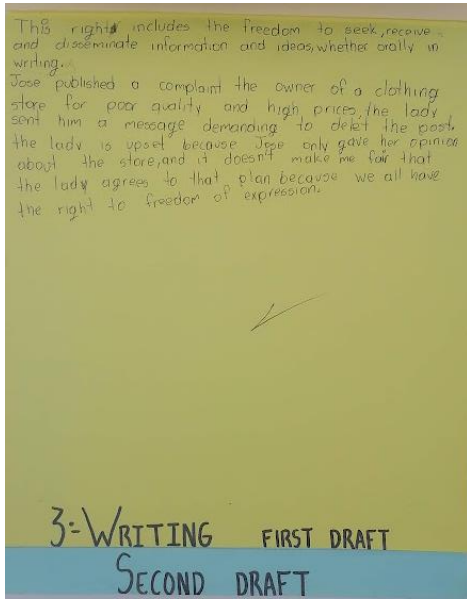 This rights includes the freedom to seek, receive
and disseminate information and ideas, whether orally in
writing.
Jose published a complaint the owner of a clothing
store for poor quality and high prices, the lady
sent him a message demanding to delet the post.
the lady is upset because Jose only gave her opinion
about the store, and it doesn't make me fair that
the lady agrees to that plan because we all have
the right to freedom of expression.
3:-WRITING FIRST DRAFT
SECOND DRAFT